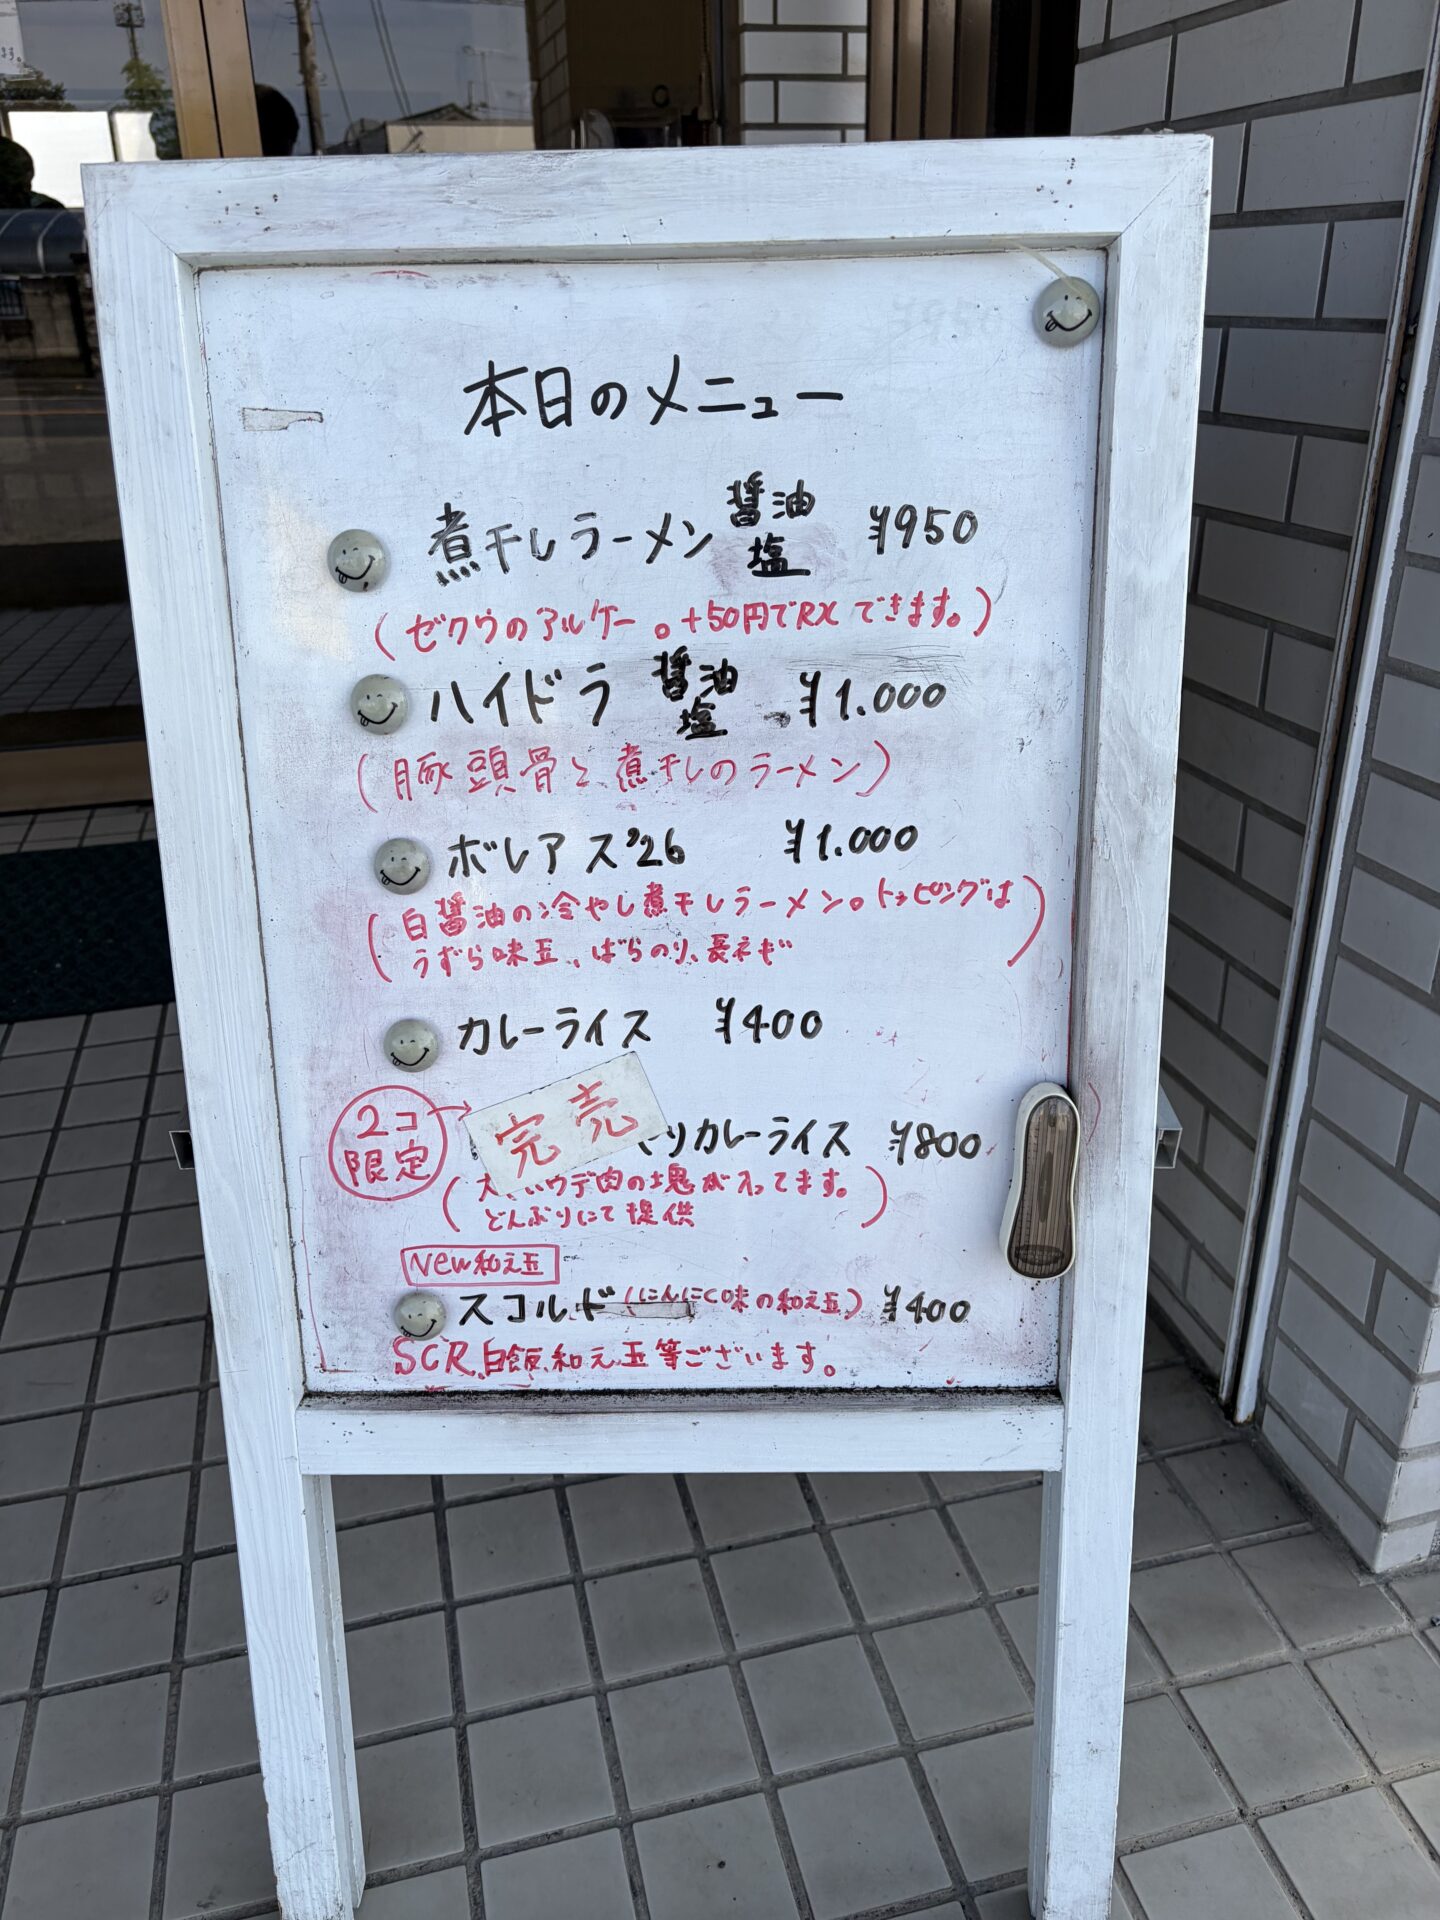 本日のメニュー
煮干しラーメン 醤油 塩 ¥950
(ゼクウのアルケー。+50円でRXできます。)
ハイドラ 醤油 塩 ¥1.000
(豚頭骨と煮干しのラーメン)
ボレアス'26 ¥1.000
(白醤油の冷やし煮干しラーメン。トッピングは
うずら味玉、ばらのり、長ネギ)
カレーライス ¥400
2コ限定→ 完売 カレーライス ¥800
ウデ肉の塊が入ってます。
どんぶりにて提供)
New和え玉
スコルド(にんにく味の和え玉) ¥400
SCR、白飯、和え玉等ございます。